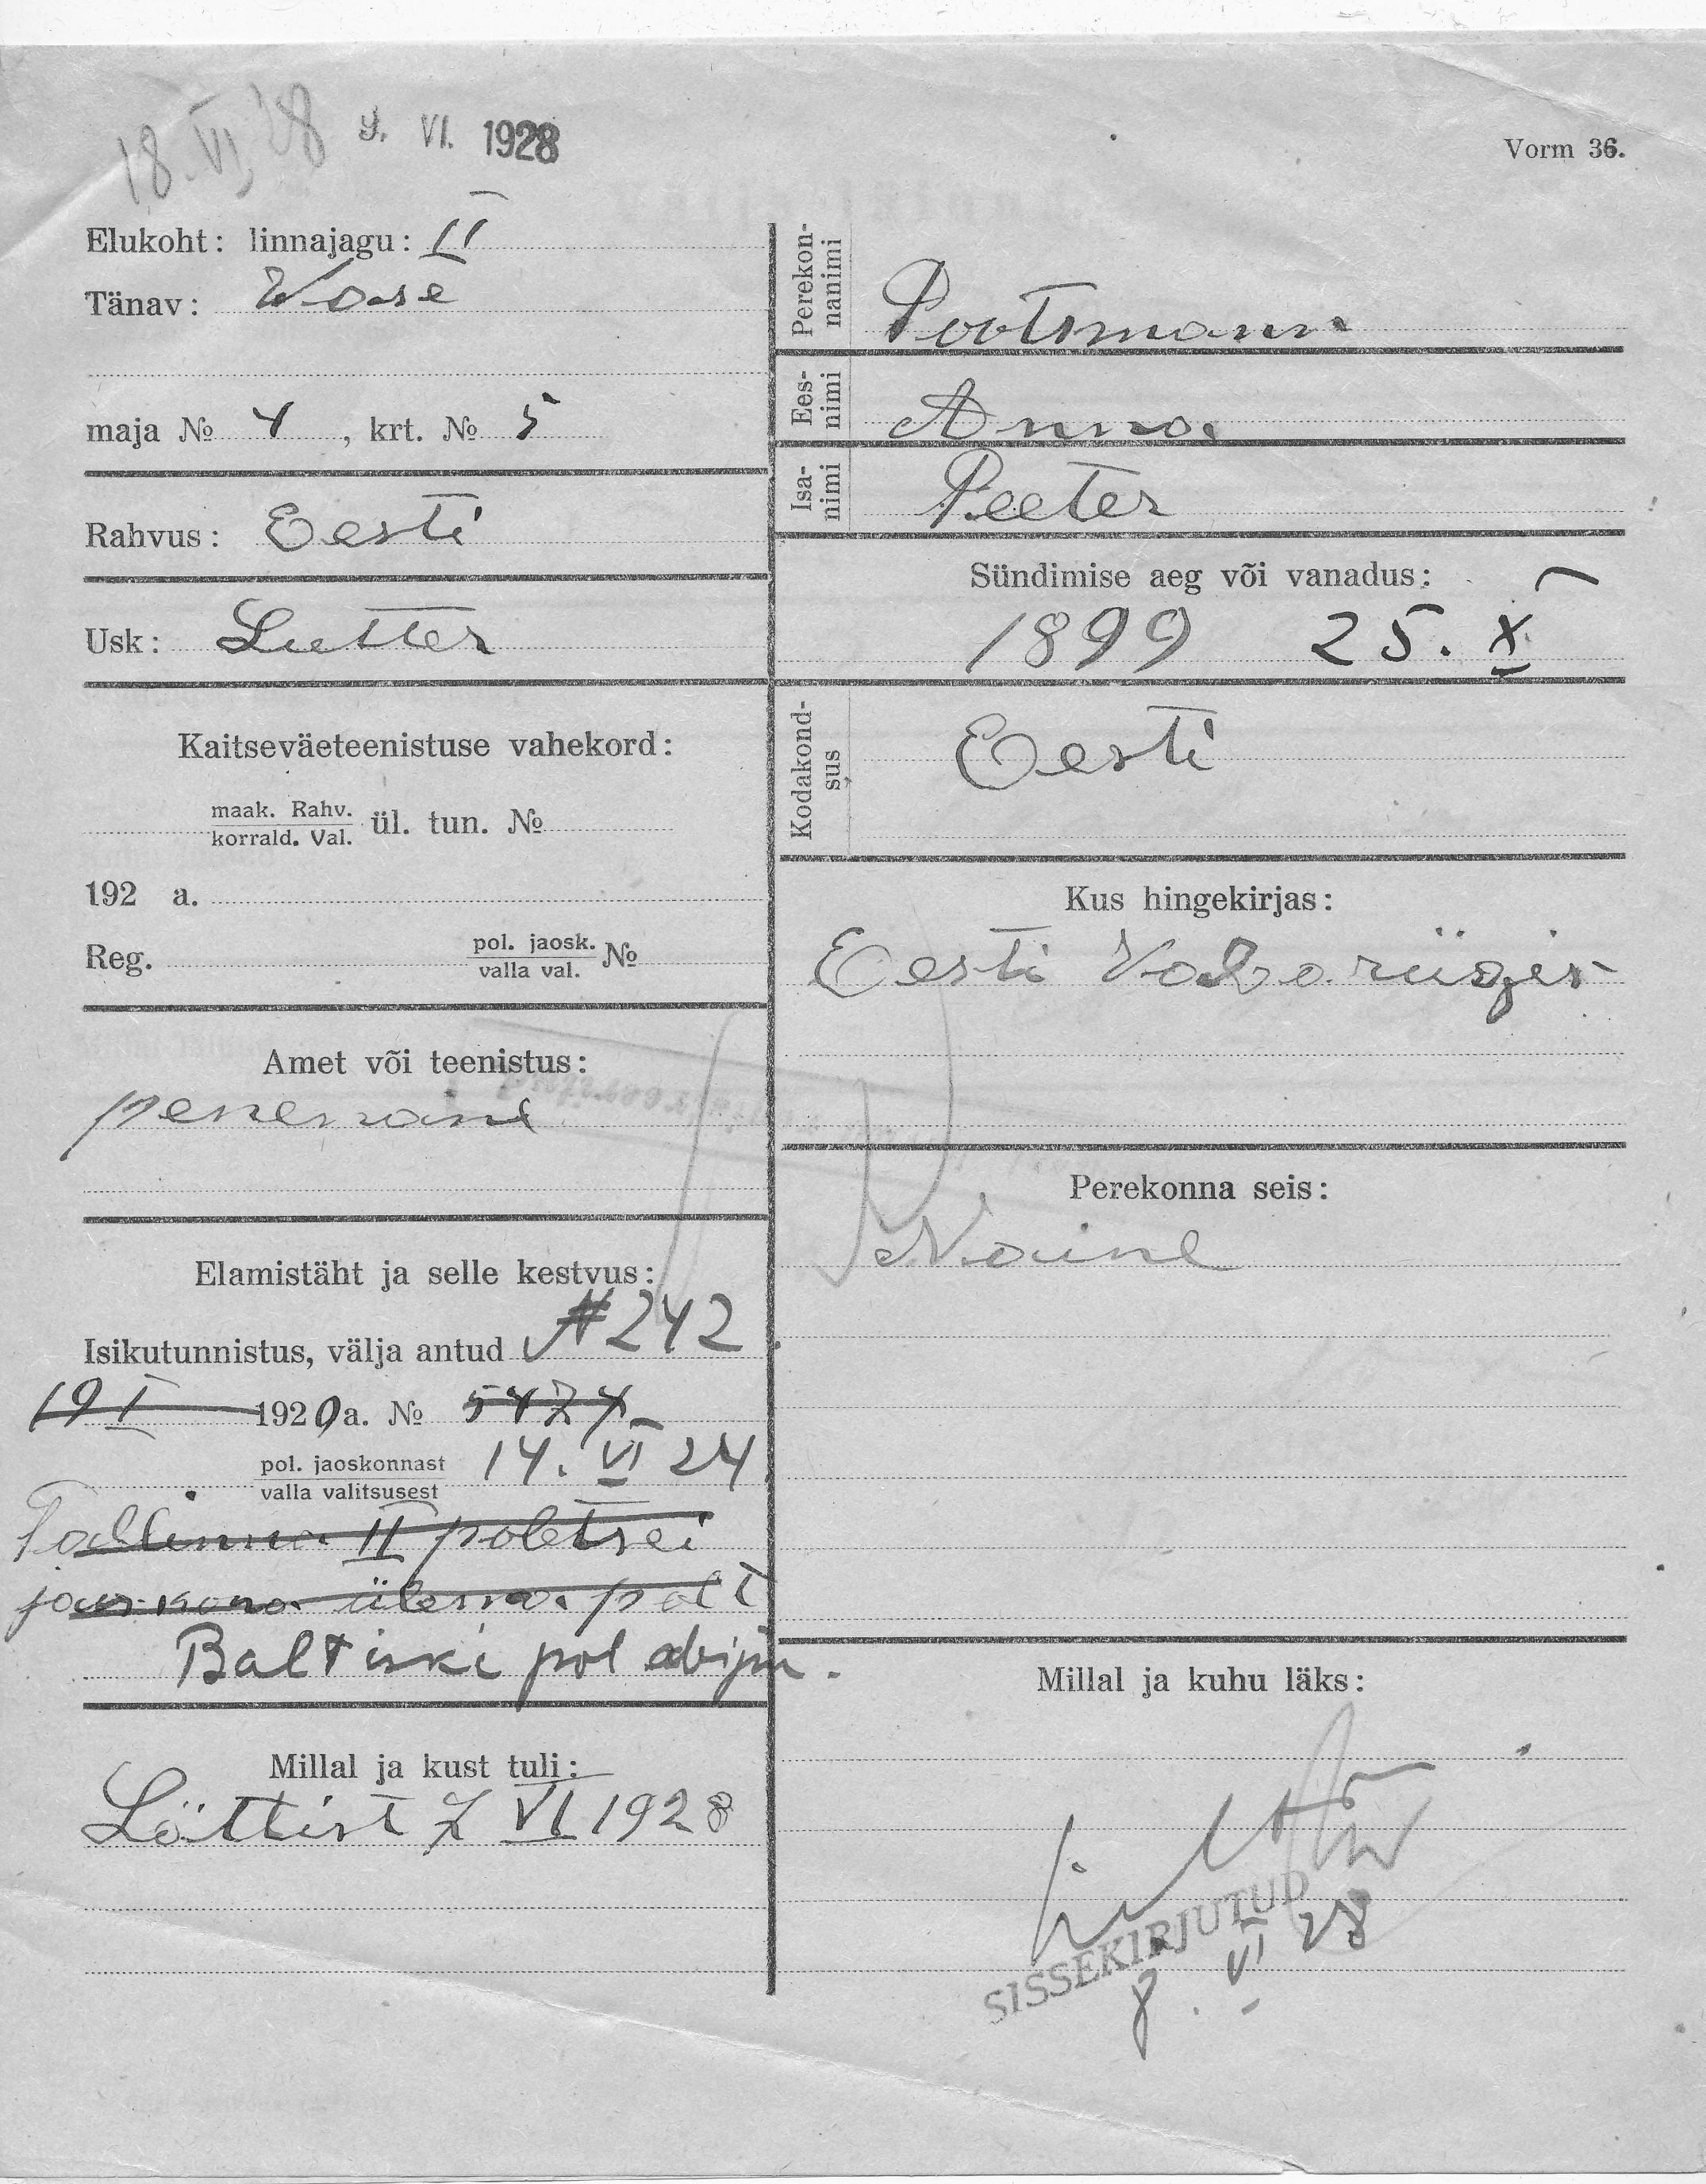 18. VI 28
9. VI. 1928
Vorm 36.
Elukoht: linnajagu: II
Tänav: Wase
maja № 4, krt. № 5
Rahvus: Eesti
Usk: Lutter
Kaitseväeteenistuse vahekord:
maak. Rahv.
korrald. Val.
ül. tun. №
192 a.
Reg. pol. jaosk. №
valla val.
Amet või teenistus:
perenaine
Elamistäht ja selle kestvus:
Isikutunnistus, välja antud № 242
19 I 1920 a. № 5474
pol. jaoskonnast 14. VI 24
valla valitsusest
Tallinna II politsei
jaoskona ülema polt
Baltiski pol
Millal ja kust tuli:
Lättist 7 VI 1928
Perekon-
nanimi
Pootsmann
Ees-
nimi
Anna
Isa-
nimi
Peeter
Sündimise aeg või vanadus:
1899 25. X
Kodakond-
sus
Eesti
Kus hingekirjas:
Eesti Vabariigis
Perekonna seis:
Naine
Millal ja kuhu läks:
SISSEKIRJUTUD
8. VI 28